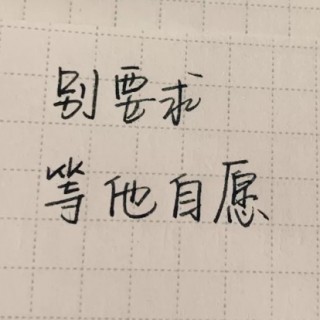 别要求
等他自愿